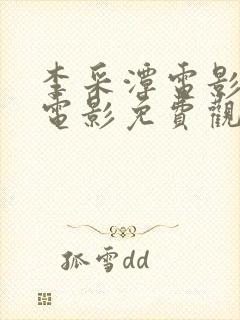 李采潭電影
電影免費觀
孤雪dd